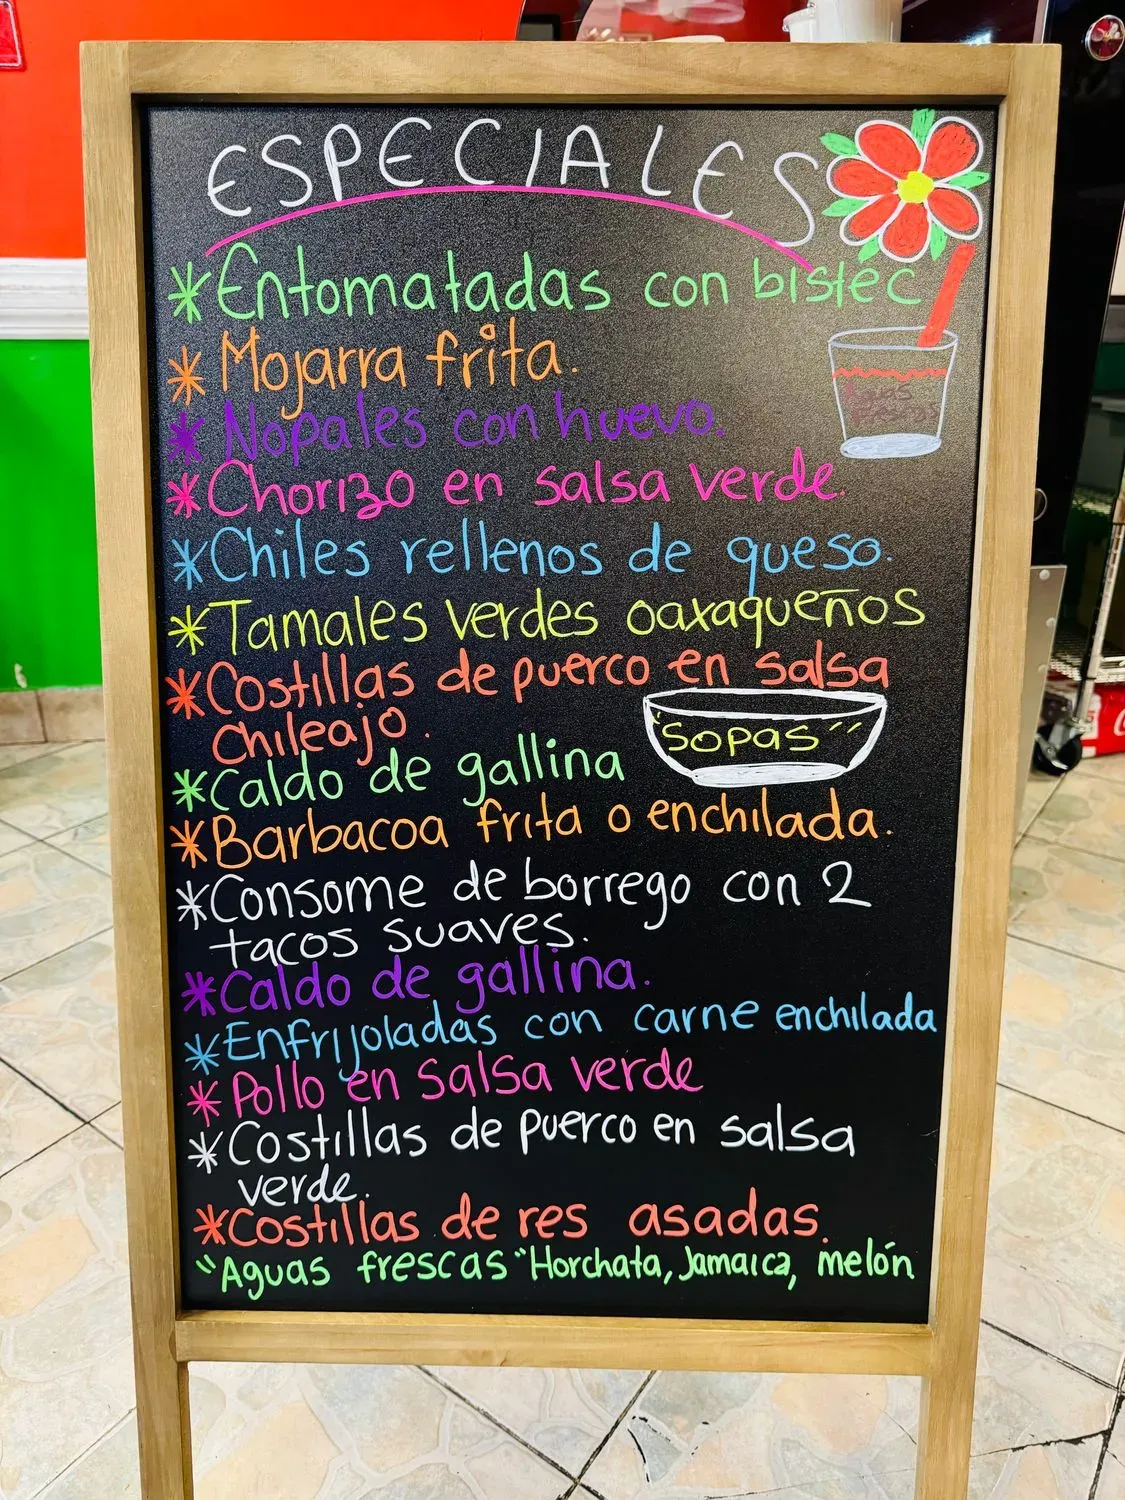 ESPECIALES
*Entomatadas con bistec
*Mojarra frita.
*Nopales con huevo.
Aguas
frescas
*Chorizo en salsa verde.
*Chiles rellenos de queso.
*Tamales verdes oaxaqueños
*Costillas de puerco en salsa
chileajo.
"SOPAS"
*Caldo de gallina
*Barbacoa frita o enchilada.
*Consome de borrego con 2
tacos suaves.
*Caldo de gallina.
*Enfrijoladas con carne enchilada
*Pollo en salsa verde
*Costillas de puerco en salsa
verde.
*Costillas de res asadas.
"Aguas frescas" Horchata, Jamaica, melón